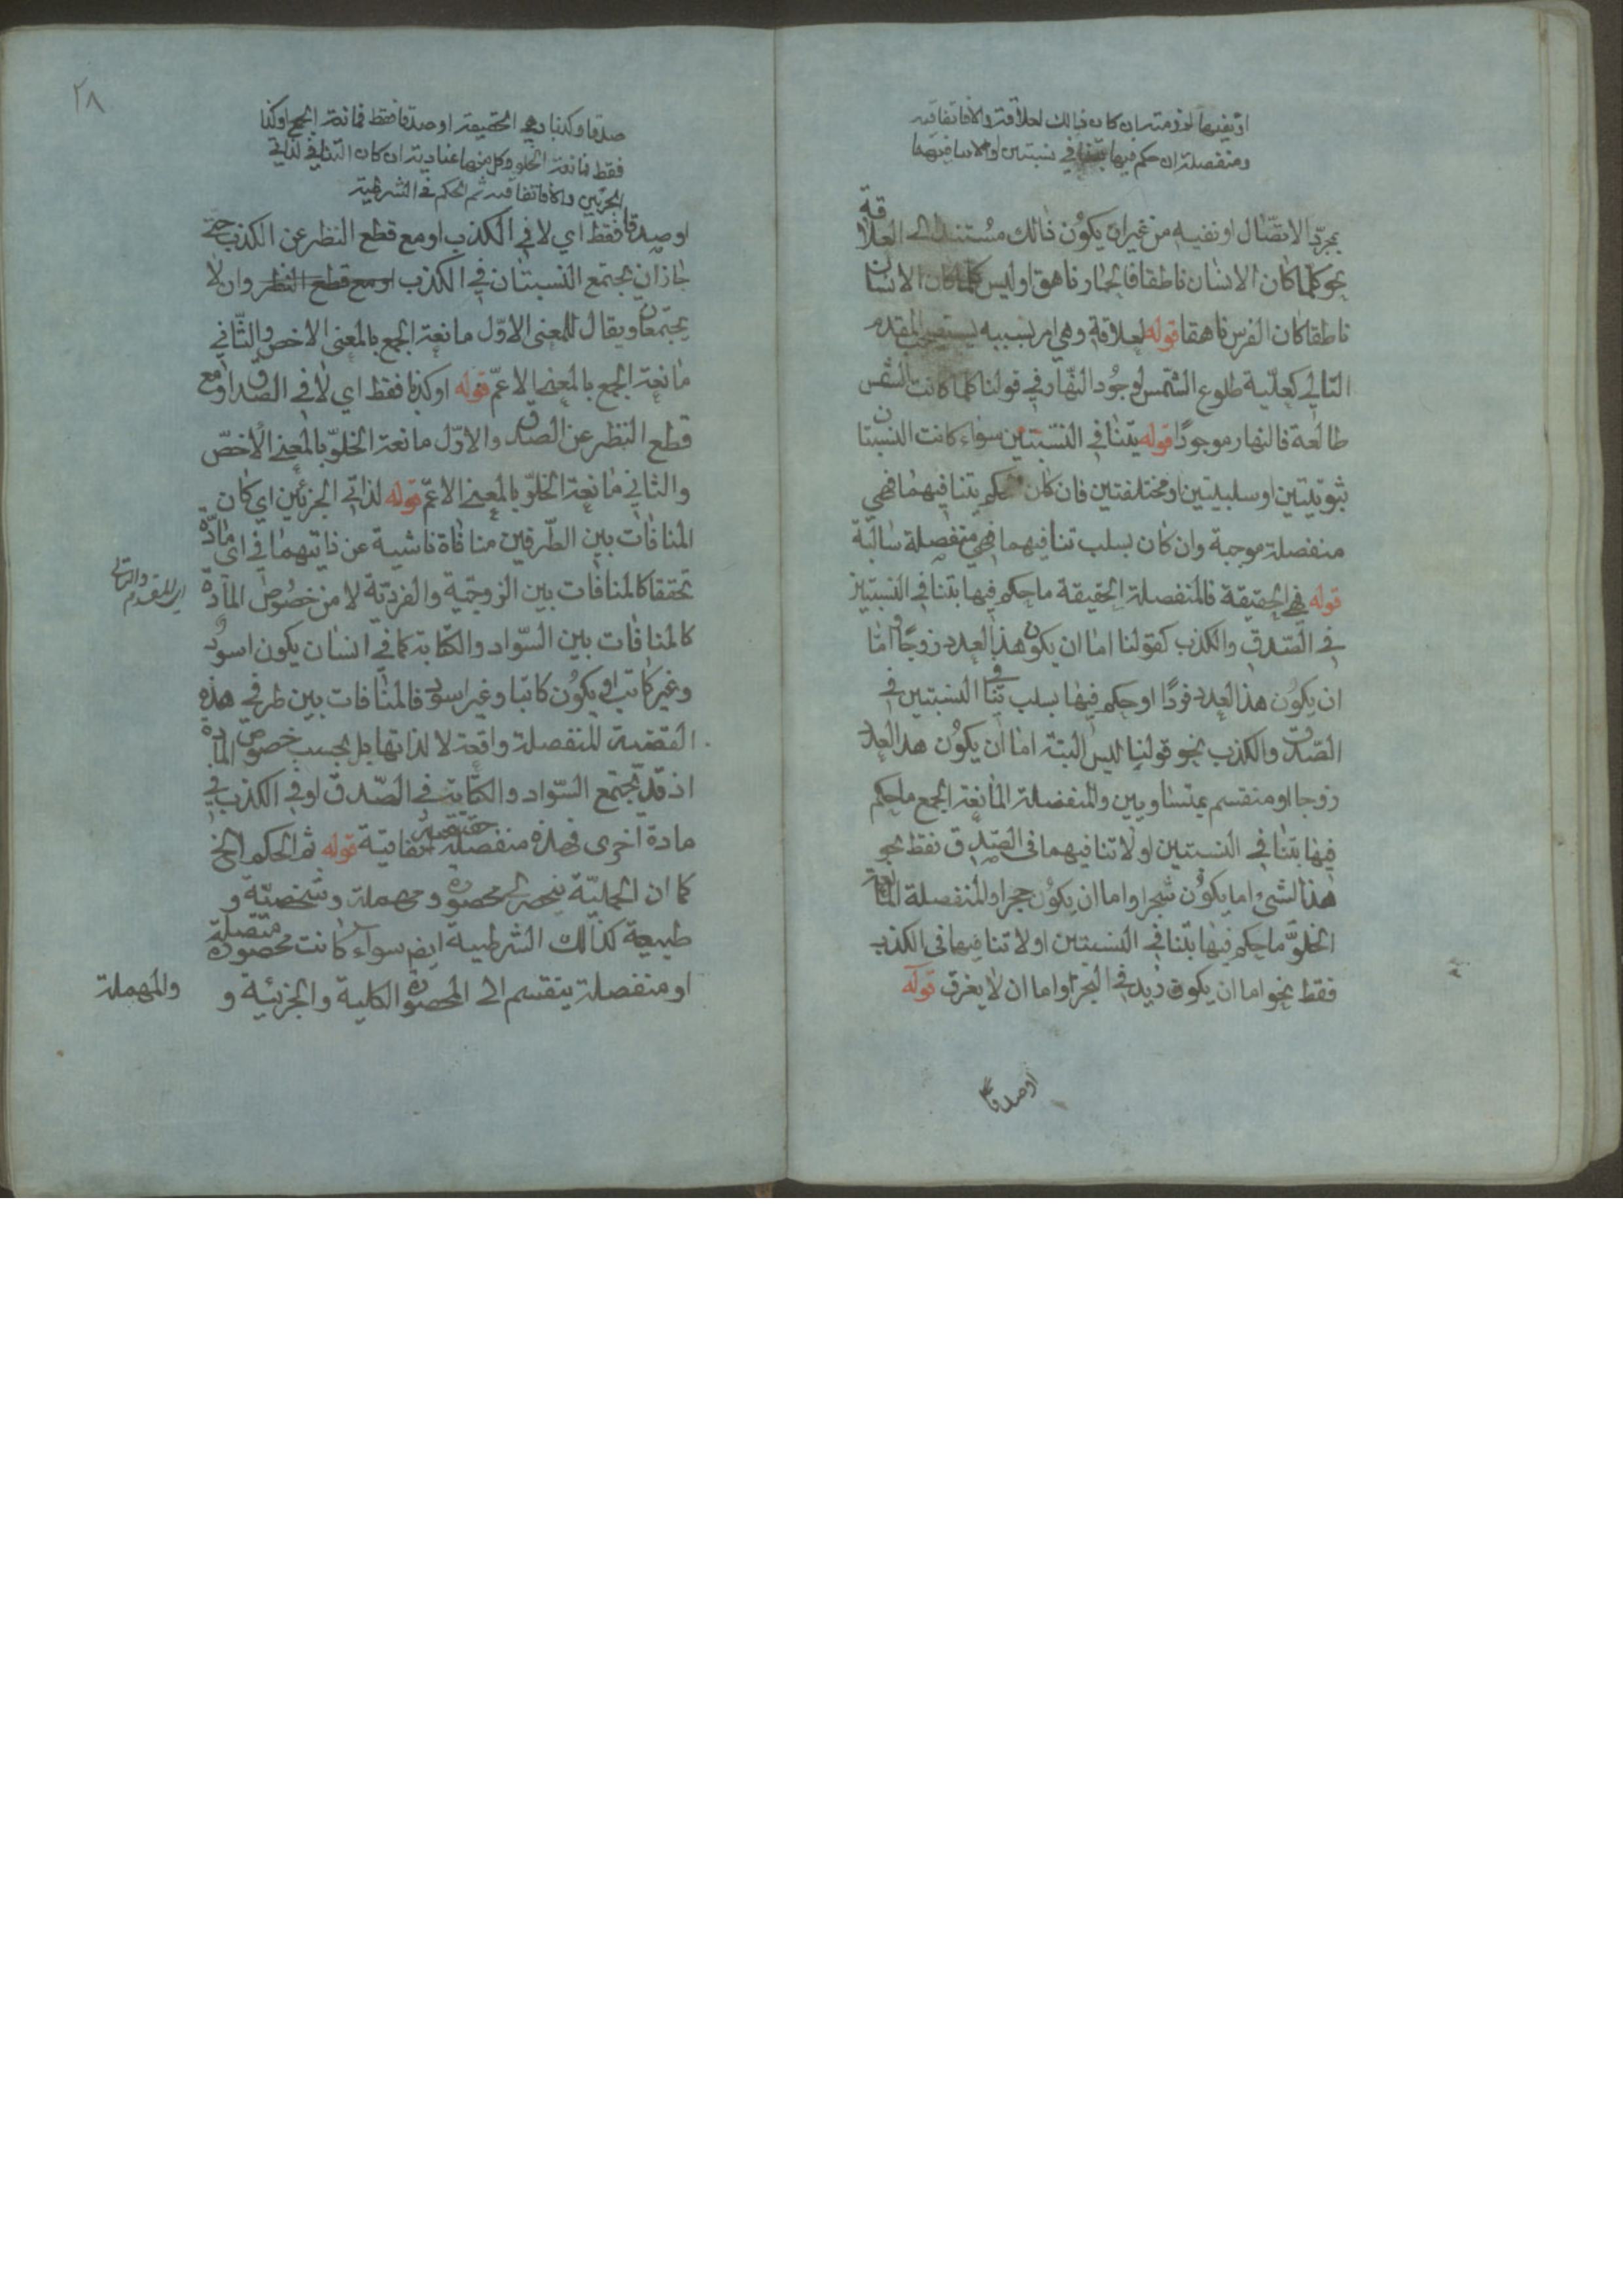 او نفيها لزومية ان كان ذالك لعلاقة والا فاتفاقية
ومنفصلة ان حكم فيها بتنافي نسبتين او لا تنافيهما
بمجرّد الاتصّال او نفيه من غير ان يكوُن ذالك مسُتندا الى العلاقة
نحو كلما كان الانسٰان ناطقا فالحمٰار ناهق او ليس كلما كان الانسٰان
ناطقا كان الفرس ناهقا قوله لعلاقة وهي امر بسببه يستصحب المقدم
التالي كعلّية طلوع الشمس لوجُود النهّار في قولنا كلما كانت الشمس
طالعة فالنهار موجودًا قوله بتنٰافي النسّبتين سوٰاء كانت النسبتان
ثبوتيتين او سلبيتين او مختلفتين فان كان حكم بتنافيهمٰا فهي
منفصلة موجبة وان كان بسلب تنافيهما فهي منفصلة سٰالبة
قوله فهي الحقيقة فالمنفصلة الحقيقة ما حكم فيها بتنافي النسبتين
في الصّدق والكذب كقولنا اما ان يكون هذا العدد زوجًا وامّا
ان يكوُن هذا العدد فردًا او حكم فيهٰا بسلب تنٰافي النسبتين في
الصّدق والكذب نحو قولنا ليس البتة امٰا ان يكوُن هذا العدد
زوجا او منقسم بمتساويين والمنفصلة المانعة الجمع ما حكم
فيهٰا بتنٰافي النسبتين او لا تنافيهما في الصّدق فقط نحو
هذا الشئ اما يكوُن شجرا واما ان يكوُن حجرا والمنفصلة المانعة
الخلوّ ما حكم فيهٰا بتنافي النسبتين او لا تنافيهما في الكذب
فقط نحو اما ان يكون زيد في البحر واما ان لا يغرق قوله
او صدقا
٢٨
صدقا وكذبا وهي الحقيقة او صدقا فقط فمانعة الجمع او كذبا
فقط فمانعة الخلو وكل منهما عنادية ان كان التنافي لذاتي
الجزئين والا فاتفاقية ثم الحكم في الشرطية
او صدقا فقط اي لا في الكذب او مع قطع النظر عن الكذب حتى
جٰاز ان يجتمع النسبتان في الكذب او مع قطع النظر وان لا
يجتمعٰان ويقال للمعنى الاوّل مانعة الجمع بالمعنى الاخص والثّاني
مانعة الجمع بالمعنى الاعمّ قوله او كذبا فقط اي لا في الصدق او مع
قطع النظر عن الصدق والاوّل مانعة الخلوّ بالمعنى الاخصّ
والثاني مانعة الخلوّ بالمعنى الاعمّ قوله لذاتي الجزئين اي كان
المنافٰات بين الطّرفين منافٰاة ناشية عن ذاتيهمٰا في اى مٰادّة
تحققا كالمنافٰات بين الزوجيّة والفرديّة لا من خصُوص المٰادّة
كالمنافٰات بين السّواد والكتٰابة كما في انسٰان يكون اسود
وغير كاتب او يكوُن كاتبا وغير اسود فالمنٰافات بين طرفي هذه
القضية المنفصلة واقعة لا لذاتها بل بحسب خصوص المادة
اذ قد يجتمع السّواد والكتٰابة في الصّدق او في الكذب في
مادة اخرى فهذه منفصلة حقيقية اتفاقية قوله ثم الحكم الخ
كما ان الحمليّة ينحصر الى محصورة ومهملة وشخصيّة و
طبيعة كذالك الشرطية ايض سواء كانت متصلة محصورة
او منفصلة ينقسم الى المحصورة الكلية والجزئية و
اي للمقدم والتالي
والمهملة